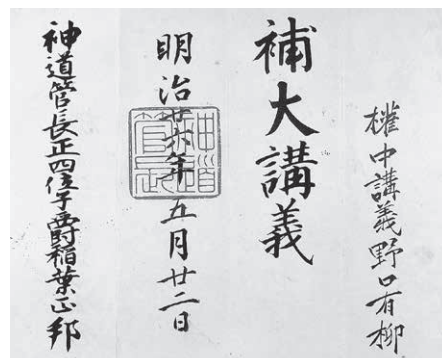 權中講義野口有柳
補大講義
明治廿六年五月廿二日
神道管長
神道管長正四位子爵稲葉正邦